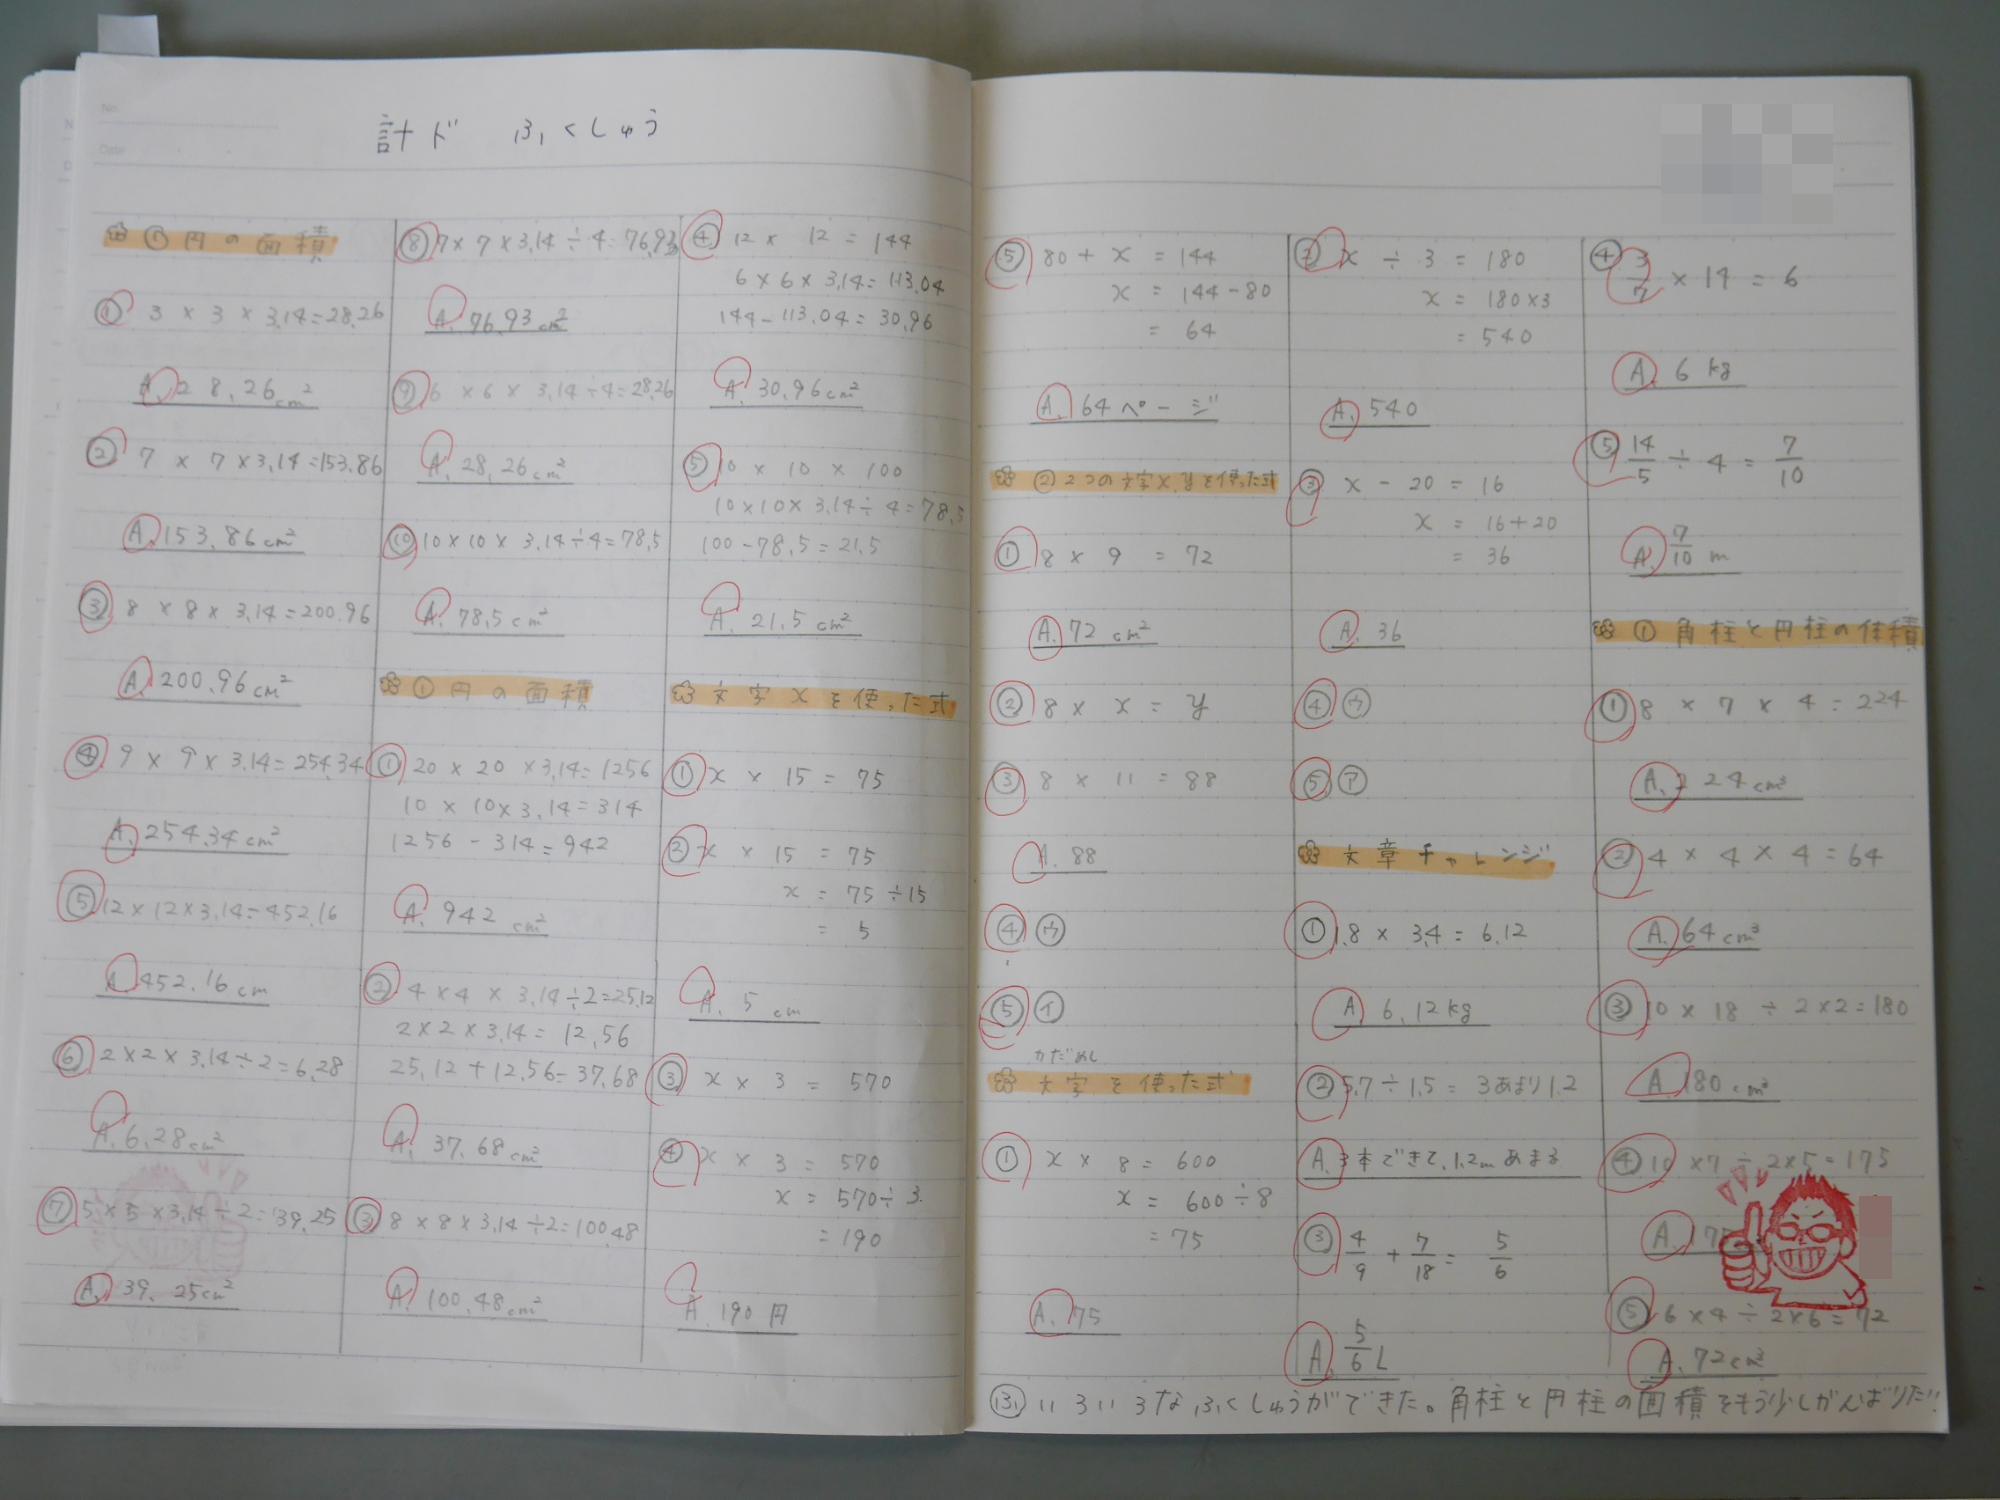 計ド ふくしゅう
①円の面積
① 3 × 3 × 3.14=28.26
A. 28.26cm²
② 7 × 7 × 3.14=153.86
A. 153.86cm²
③ 8 × 8 × 3.14=200.96
A. 200.96cm²
④ 9 × 9 × 3.14=254.34
A. 254.34cm²
⑤ 12×12×3.14=452.16
A. 452.16cm
⑥ 2×2×3.14÷2=6.28
A. 6.28cm²
⑦ 5×5×3.14÷2=39.25
A. 39.25cm²
⑧ 7×7×3.14÷4=76.93
A. 76.93cm²
⑨ 6×6×3.14÷4=28.26
A. 28.26cm²
⑩ 10×10×3.14÷4=78.5
A. 78.5cm²
①円の面積
① 20×20×3.14=1256
10×10×3.14=314
1256-314=942
A. 942cm²
② 4×4×3.14÷2=25.12
2×2×3.14=12.56
25.12+12.56=37.68
A. 37.68cm²
③ 8×8×3.14÷2=100.48
A. 100.48cm²
④ 12×12=144
6×6×3.14=113.04
144-113.04=30.96
A. 30.96cm²
⑤ 10×10×100
10×10×3.14÷4=78.5
100-78.5=21.5
A. 21.5cm²
文字xを使った式
① x×15=75
② x×15=75
x=75÷15
=5
A. 5cm
③ x×3=570
④ x×3=570
x=570÷3
=190
A. 190円
⑤ 80+x=144
x=144-80
=64
A. 64ページ
②2つの文字x,yを使った式
① 8×9=72
A. 72cm²
② 8×x=y
③ 8×11=88
A. 88
④ ウ
⑤ イ
かだめし
文字を使った式
① x×8=600
x=600÷8
=75
A. 75
② x÷3=180
x=180×3
=540
A. 540
③ x-20=16
x=16+20
=36
A. 36
④ ウ
⑤ ア
文章チャレンジ
① 1.8×3.4=6.12
A. 6.12kg
② 5.7÷1.5=3あまり1.2
A. 3本できて、1.2mあまる
③ 4/9+7/18=5/6
A. 5/6L
④ 3/7×14=6
A. 6kg
⑤ 14/5÷4=7/10
A. 7/10m
①角柱と円柱の体積
① 8×7×4=224
A. 224cm³
② 4×4×4=64
A. 64cm³
③ 10×18÷2×2=180
A. 180cm³
④ 10×7÷2×5=175
A. 175
⑤ 6×4÷2×6=72
A. 72cm³
ふ いろいろなふくしゅうができた。角柱と円柱の面積をもう少しがんばりだ!!